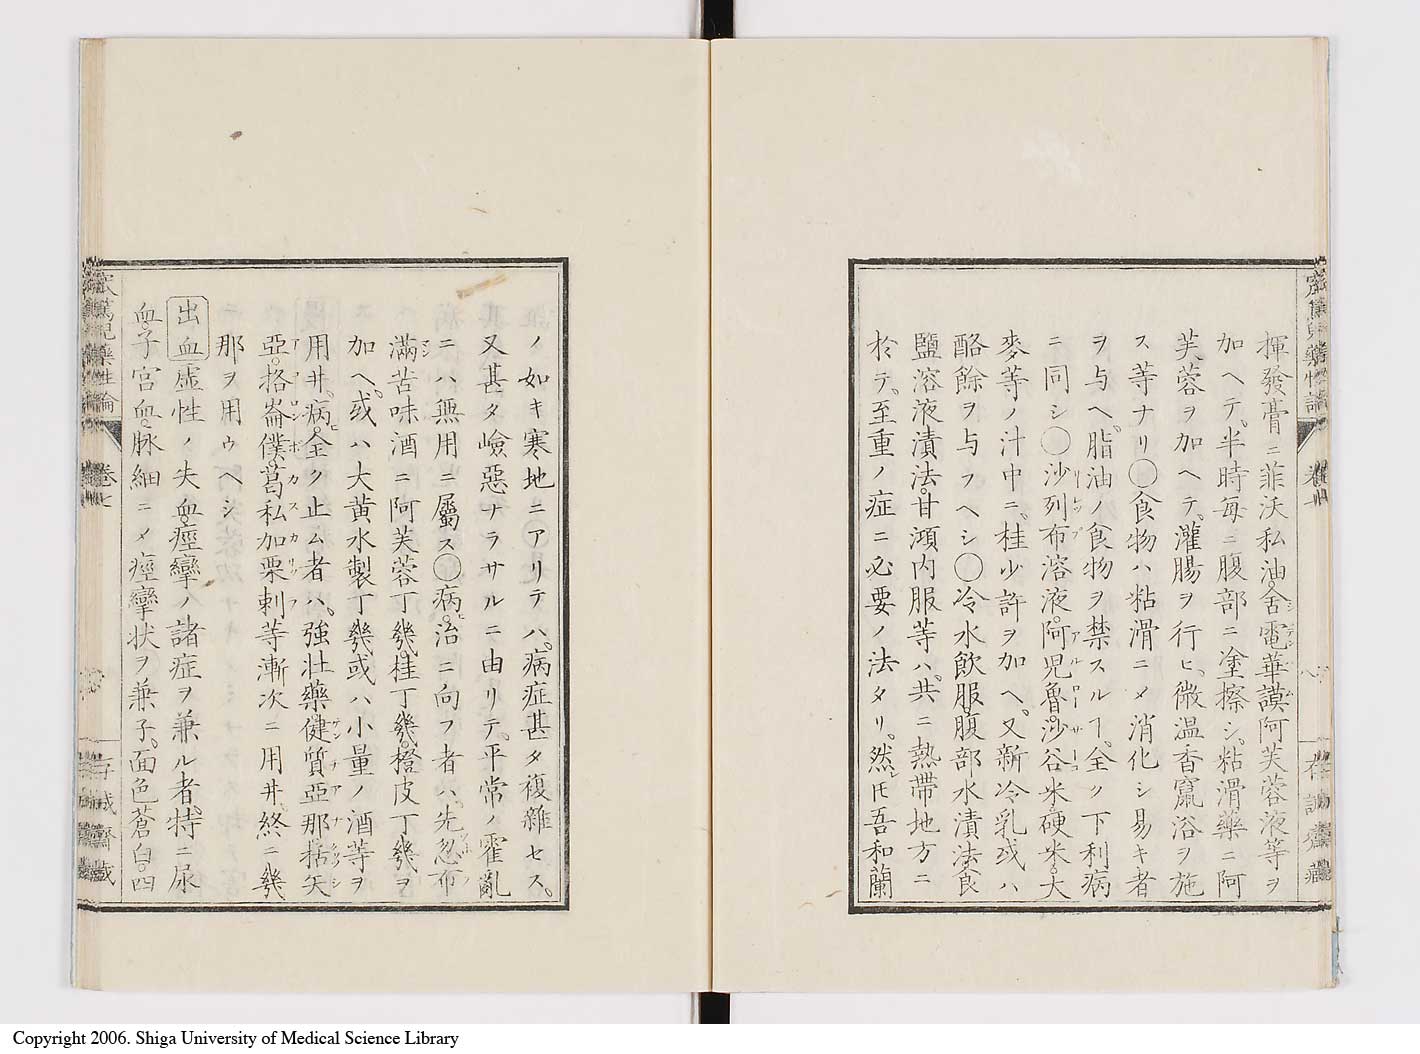 揮發膏ニ菲沃私油、舍電華謨阿芙蓉液等ヲ
加ヘテ、半時毎ニ腹部ニ塗擦シ、粘滑藥ニ阿
芙蓉ヲ加ヘテ、灌腸ヲ行ヒ、微温香竄浴ヲ施
ス等ナリ○食物ハ粘滑ニメ消化シ易キ者
ヲ与ヘ、脂油ノ食物ヲ禁スルヿ、全ク下利病
ニ同シ○沙列布溶液、阿児魯沙谷米、硬米、大
麥等ノ汁中ニ、桂少許ヲ加ヘ、又新冷乳或ハ
酪餘ヲ与フヘシ○冷水飲服、腹部水漬法、食
鹽溶液漬法、甘澒内服等ハ、共ニ熱帯地方ニ
於テ、至重ノ症ニ必要ノ法タリ、然レ𪜈吾和蘭
ノ如キ寒地ニアリテハ、病症甚タ複雜セス、
又甚タ嶮惡ナラサルニ由リテ、平常ノ霍亂
ニハ無用ニ屬ス○病治ニ向フ者ハ、先忽布
滿苦味酒ニ阿芙蓉丁幾、桂丁幾、橙皮丁幾ヲ
加ヘ、或ハ大黄水製丁幾或ハ小量ノ酒等ヲ
用井、病全ク止ム者ハ、強壮藥健質亞那、括矢
亞、格崙僕、葛私加栗剌等漸次ニ用井、終ニ幾
那ヲ用ゥヘシ
出血 虚性ノ失血、痙攣ノ諸症ヲ兼ル者、特ニ尿
血、子宮血、脉細ニメ痙攣状ヲ兼子、面色蒼白、四
藥性論
卷七